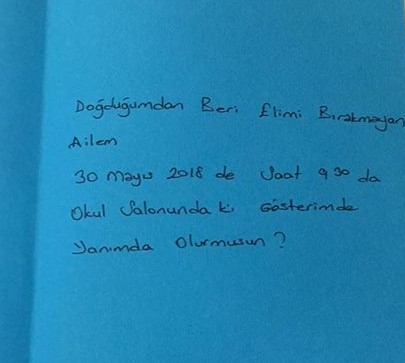 Doğduğumdan Beri Elimi Bırakmayan
Ailem
30 mayıs 2018 de Saat 9 30 da
Okul Salonunda ki Gösterimde
Yanımda Olurmusun?